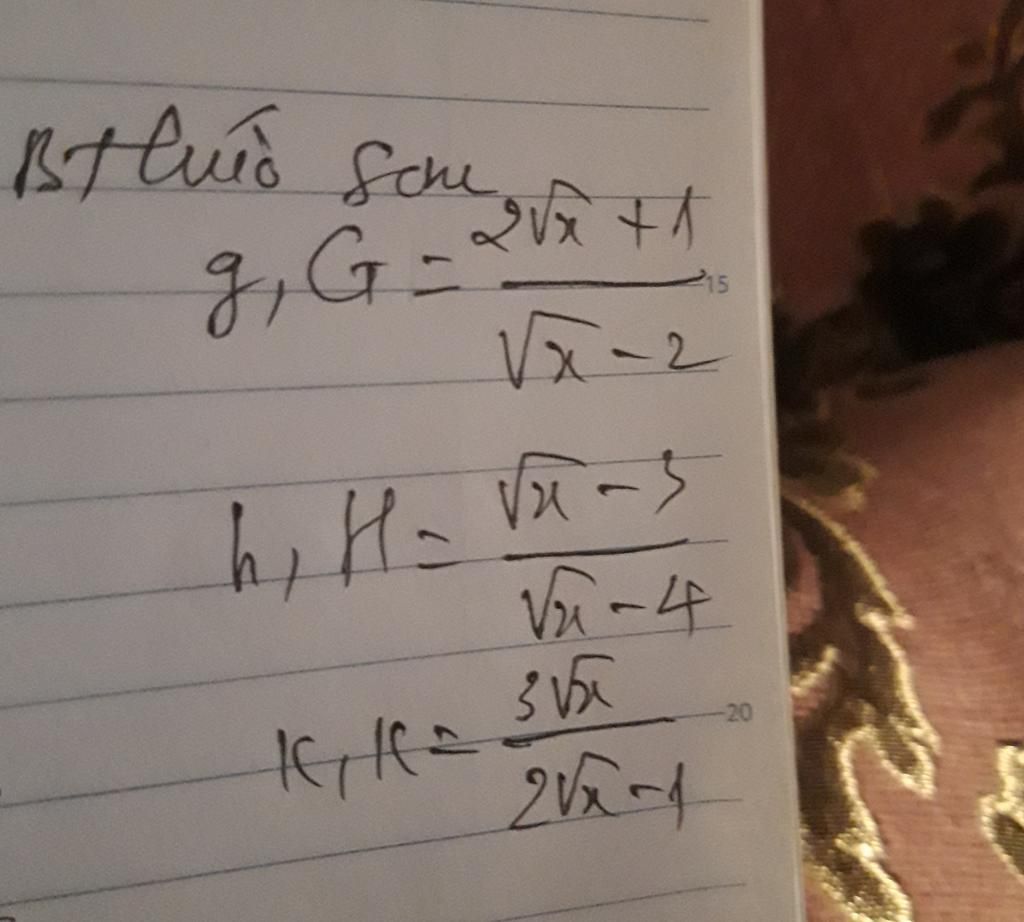 BT
g, G = \frac{2\sqrt{x} + 1}{\sqrt{x} - 2}
15
h, H = \frac{\sqrt{x} - 3}{\sqrt{x} - 4}
K, K = \frac{3\sqrt{x}}{2\sqrt{x} - 1}
20